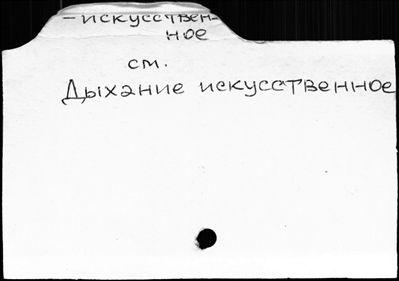 - искусствен-
ное
см.
Дыхание искусственное